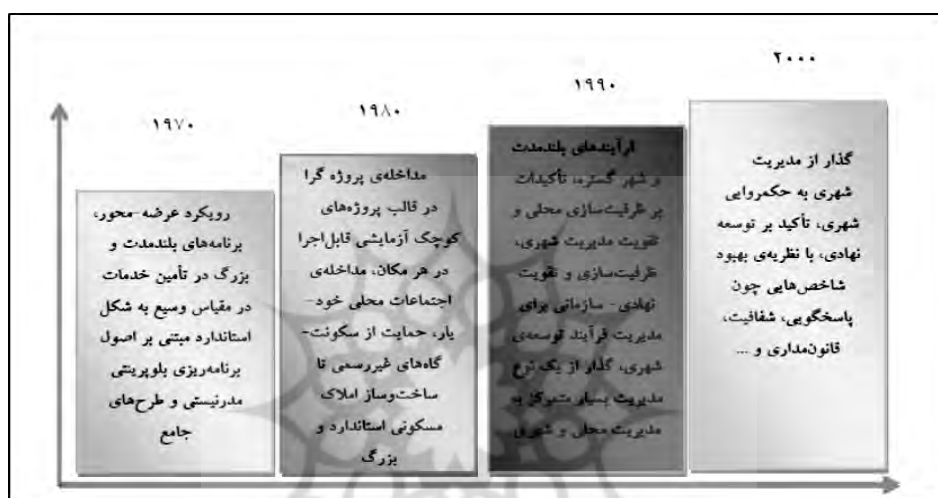 ۱۹۷۰
رویکرد عرضه-محور،
برنامه‌های بلندمدت و
بزرگ در تأمین خدمات
در مقیاس وسیع به شکل
استاندارد مبتنی بر اصول
برنامه‌ریزی بلوپرینتی
مدرنیستی و طرح‌های
جامع
۱۹۸۰
مداخله‌ی پروژه گرا
در قالب پروژه‌های
کوچک آزمایشی قابل‌اجرا
در هر مکان، مداخله‌ی
اجتماعات محلی خود-
یار، حمایت از سکونت-
گاه‌های غیررسمی تا
ساخت‌وساز املاک
مسکونی استاندارد و
بزرگ
۱۹۹۰
فرآیندهای بلندمدت
و شهر گستره، تأکیدات
بر ظرفیت‌سازی محلی و
تقویت مدیریت شهری،
ظرفیت‌سازی و تقویت
نهادی- سازمانی برای
مدیریت فرآیند توسعه‌ی
شهری، گذار از یک نوع
مدیریت بسیار متمرکز به
مدیریت محلی و شهری
۲۰۰۰
گذار از مدیریت
شهری به حکمروایی
شهری، تأکید بر توسعه
نهادی، با نظریه‌ی بهبود
شاخص‌هایی چون
پاسخگویی، شفافیت،
قانون‌مداری و ...